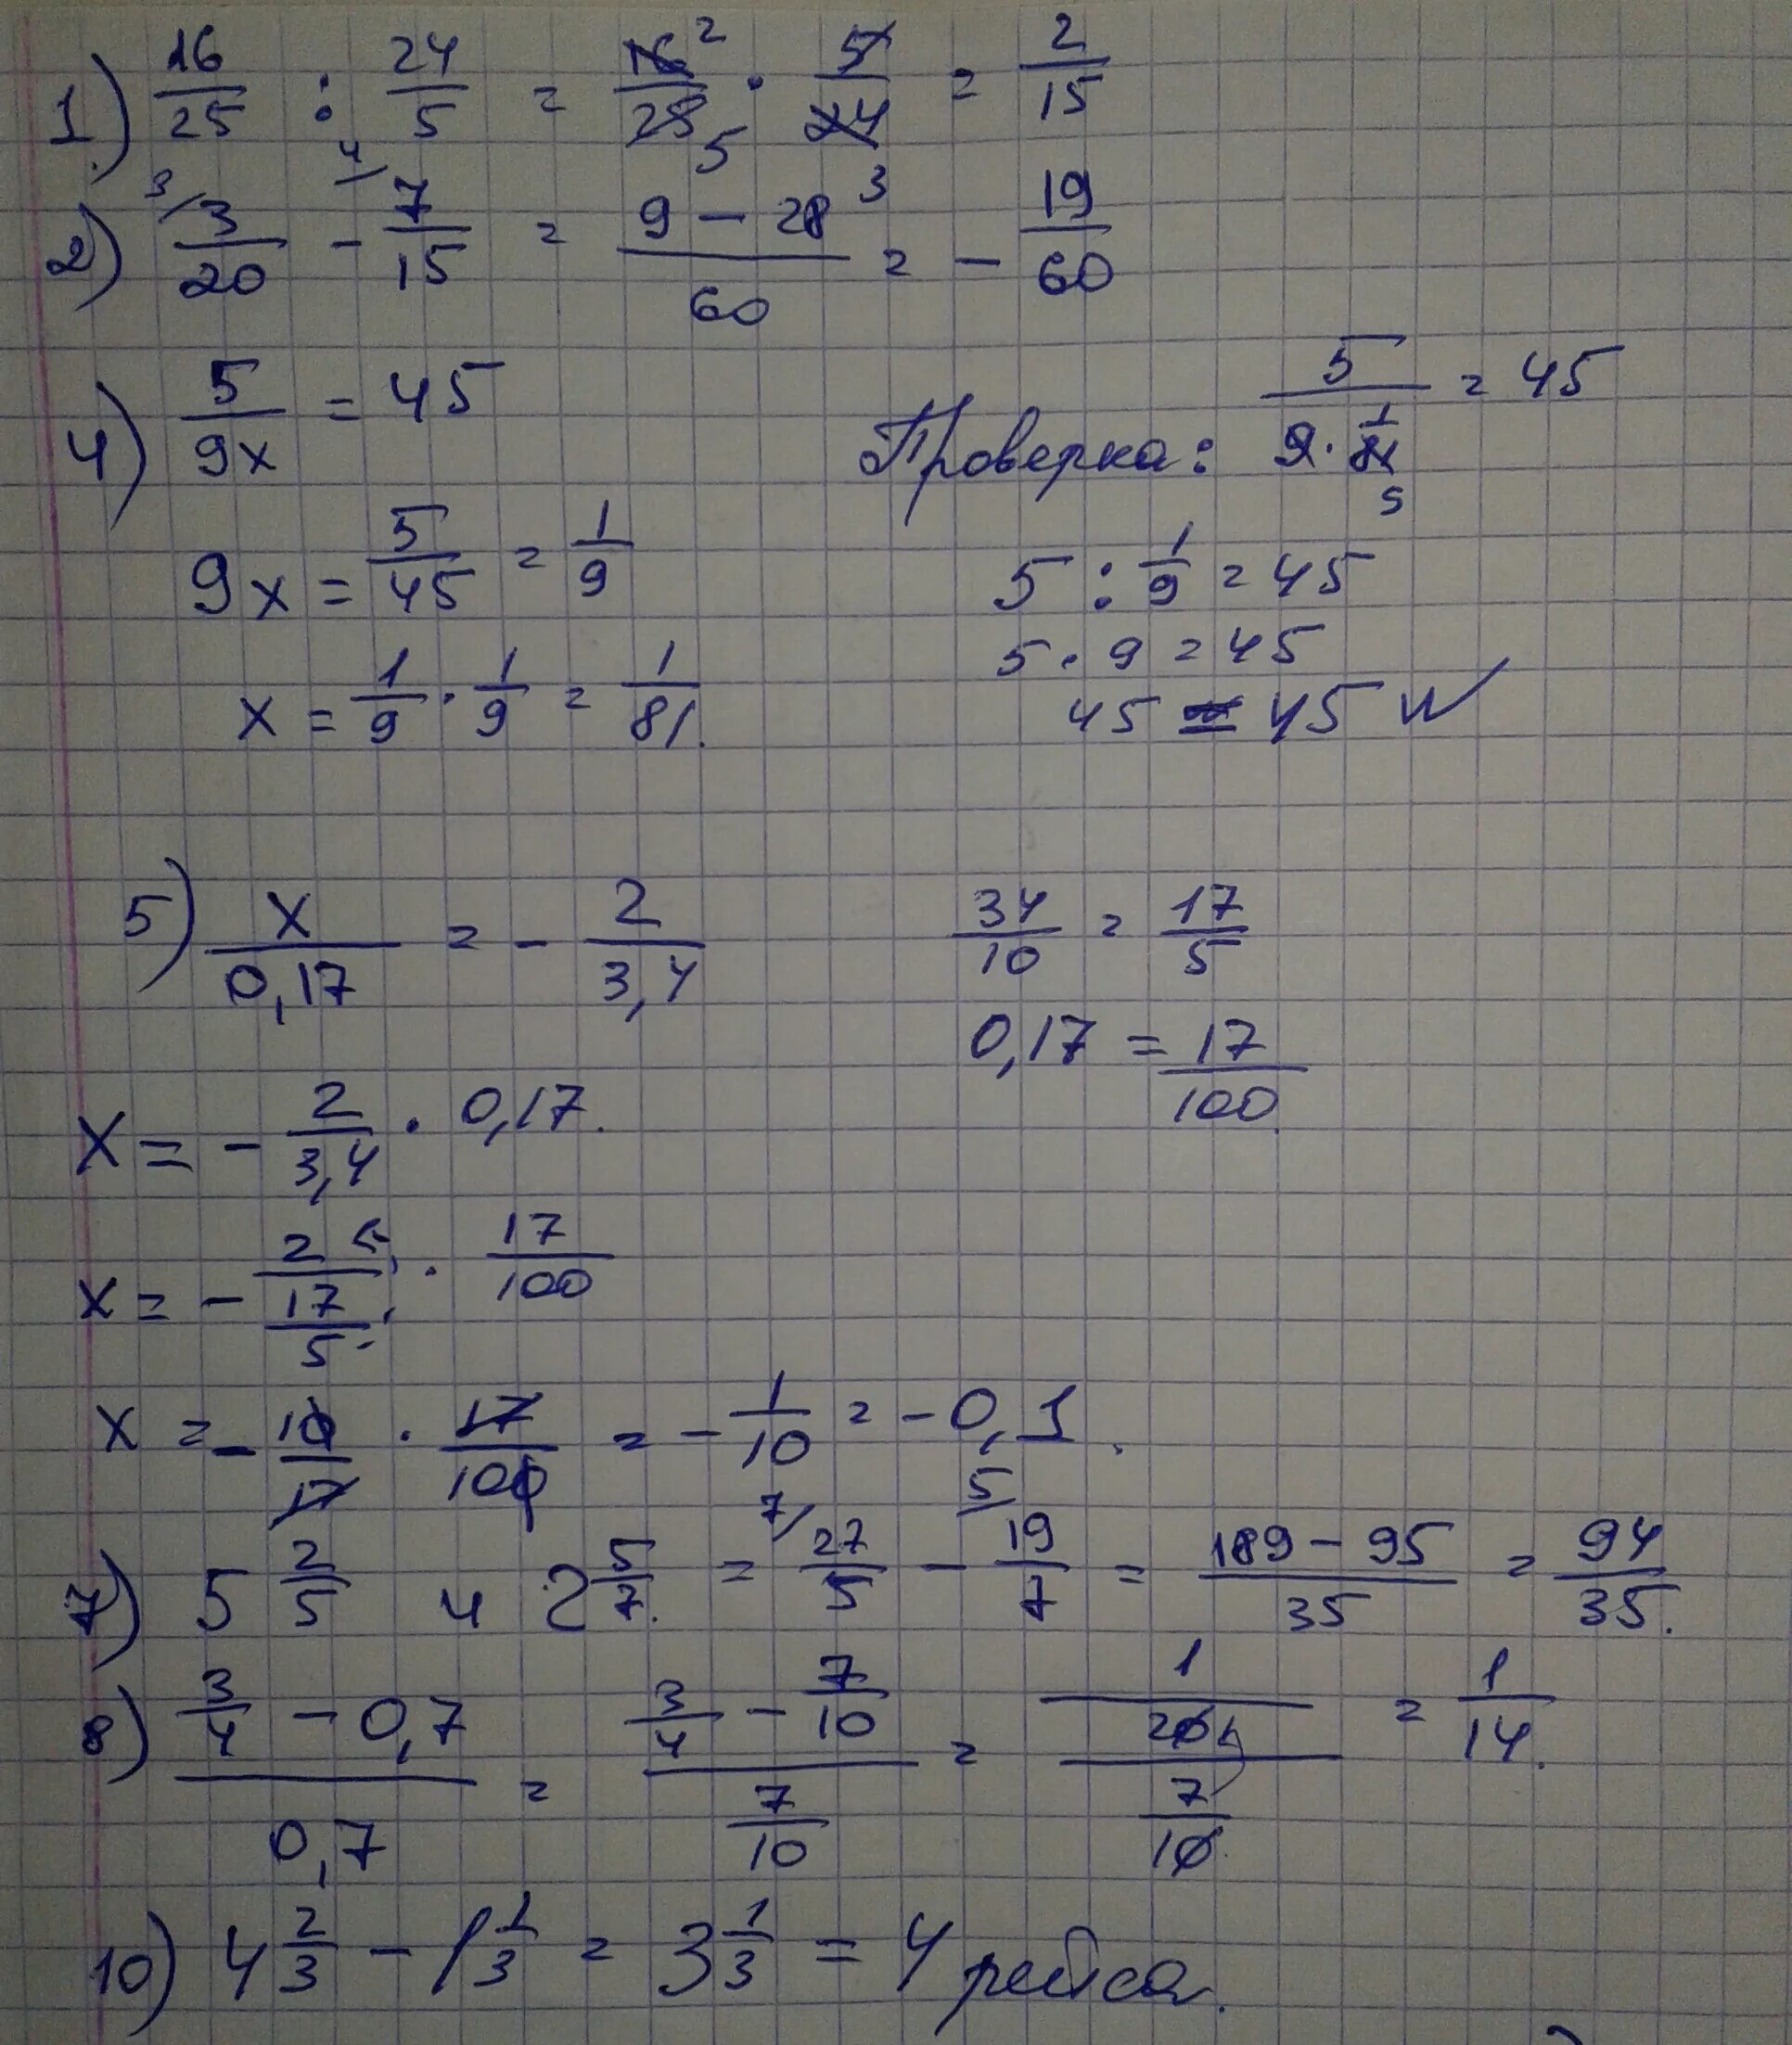 1) 16/25 : 24/5 = 16 2/25 5 · 5/24 3 = 2/15
2) 3/ 3/20 - 4/ 7/15 = (9 - 28)/60 = - 19/60
4) 5/9x = 45
Проверка: 5/(9 · 1/81) = 45
9
9x = 5/45 = 1/9
5 : 1/9 = 45
x = 1/9 · 1/9 = 1/81.
5 · 9 = 45
45 = 45
5) x/0,17 = - 2/3,4
34/10 = 17/5
0,17 = 17/100
x = - 2/3,4 · 0,17.
x = - 2/(17/5) · 17/100
x = - 10/17 · 17/100 = - 1/10 = -0,1.
7) 5 2/5 и 2 5/7 = 7/ 27/5 - 5/ 19/7 = (189 - 95)/35 = 94/35.
8) (3/4 - 0,7)/0,7 = (3/4 - 7/10)/(7/10) = (1/20)/(7/10) = 1/14.
10) 4 2/3 - 1 1/3 = 3 1/3 = 4 рейса.